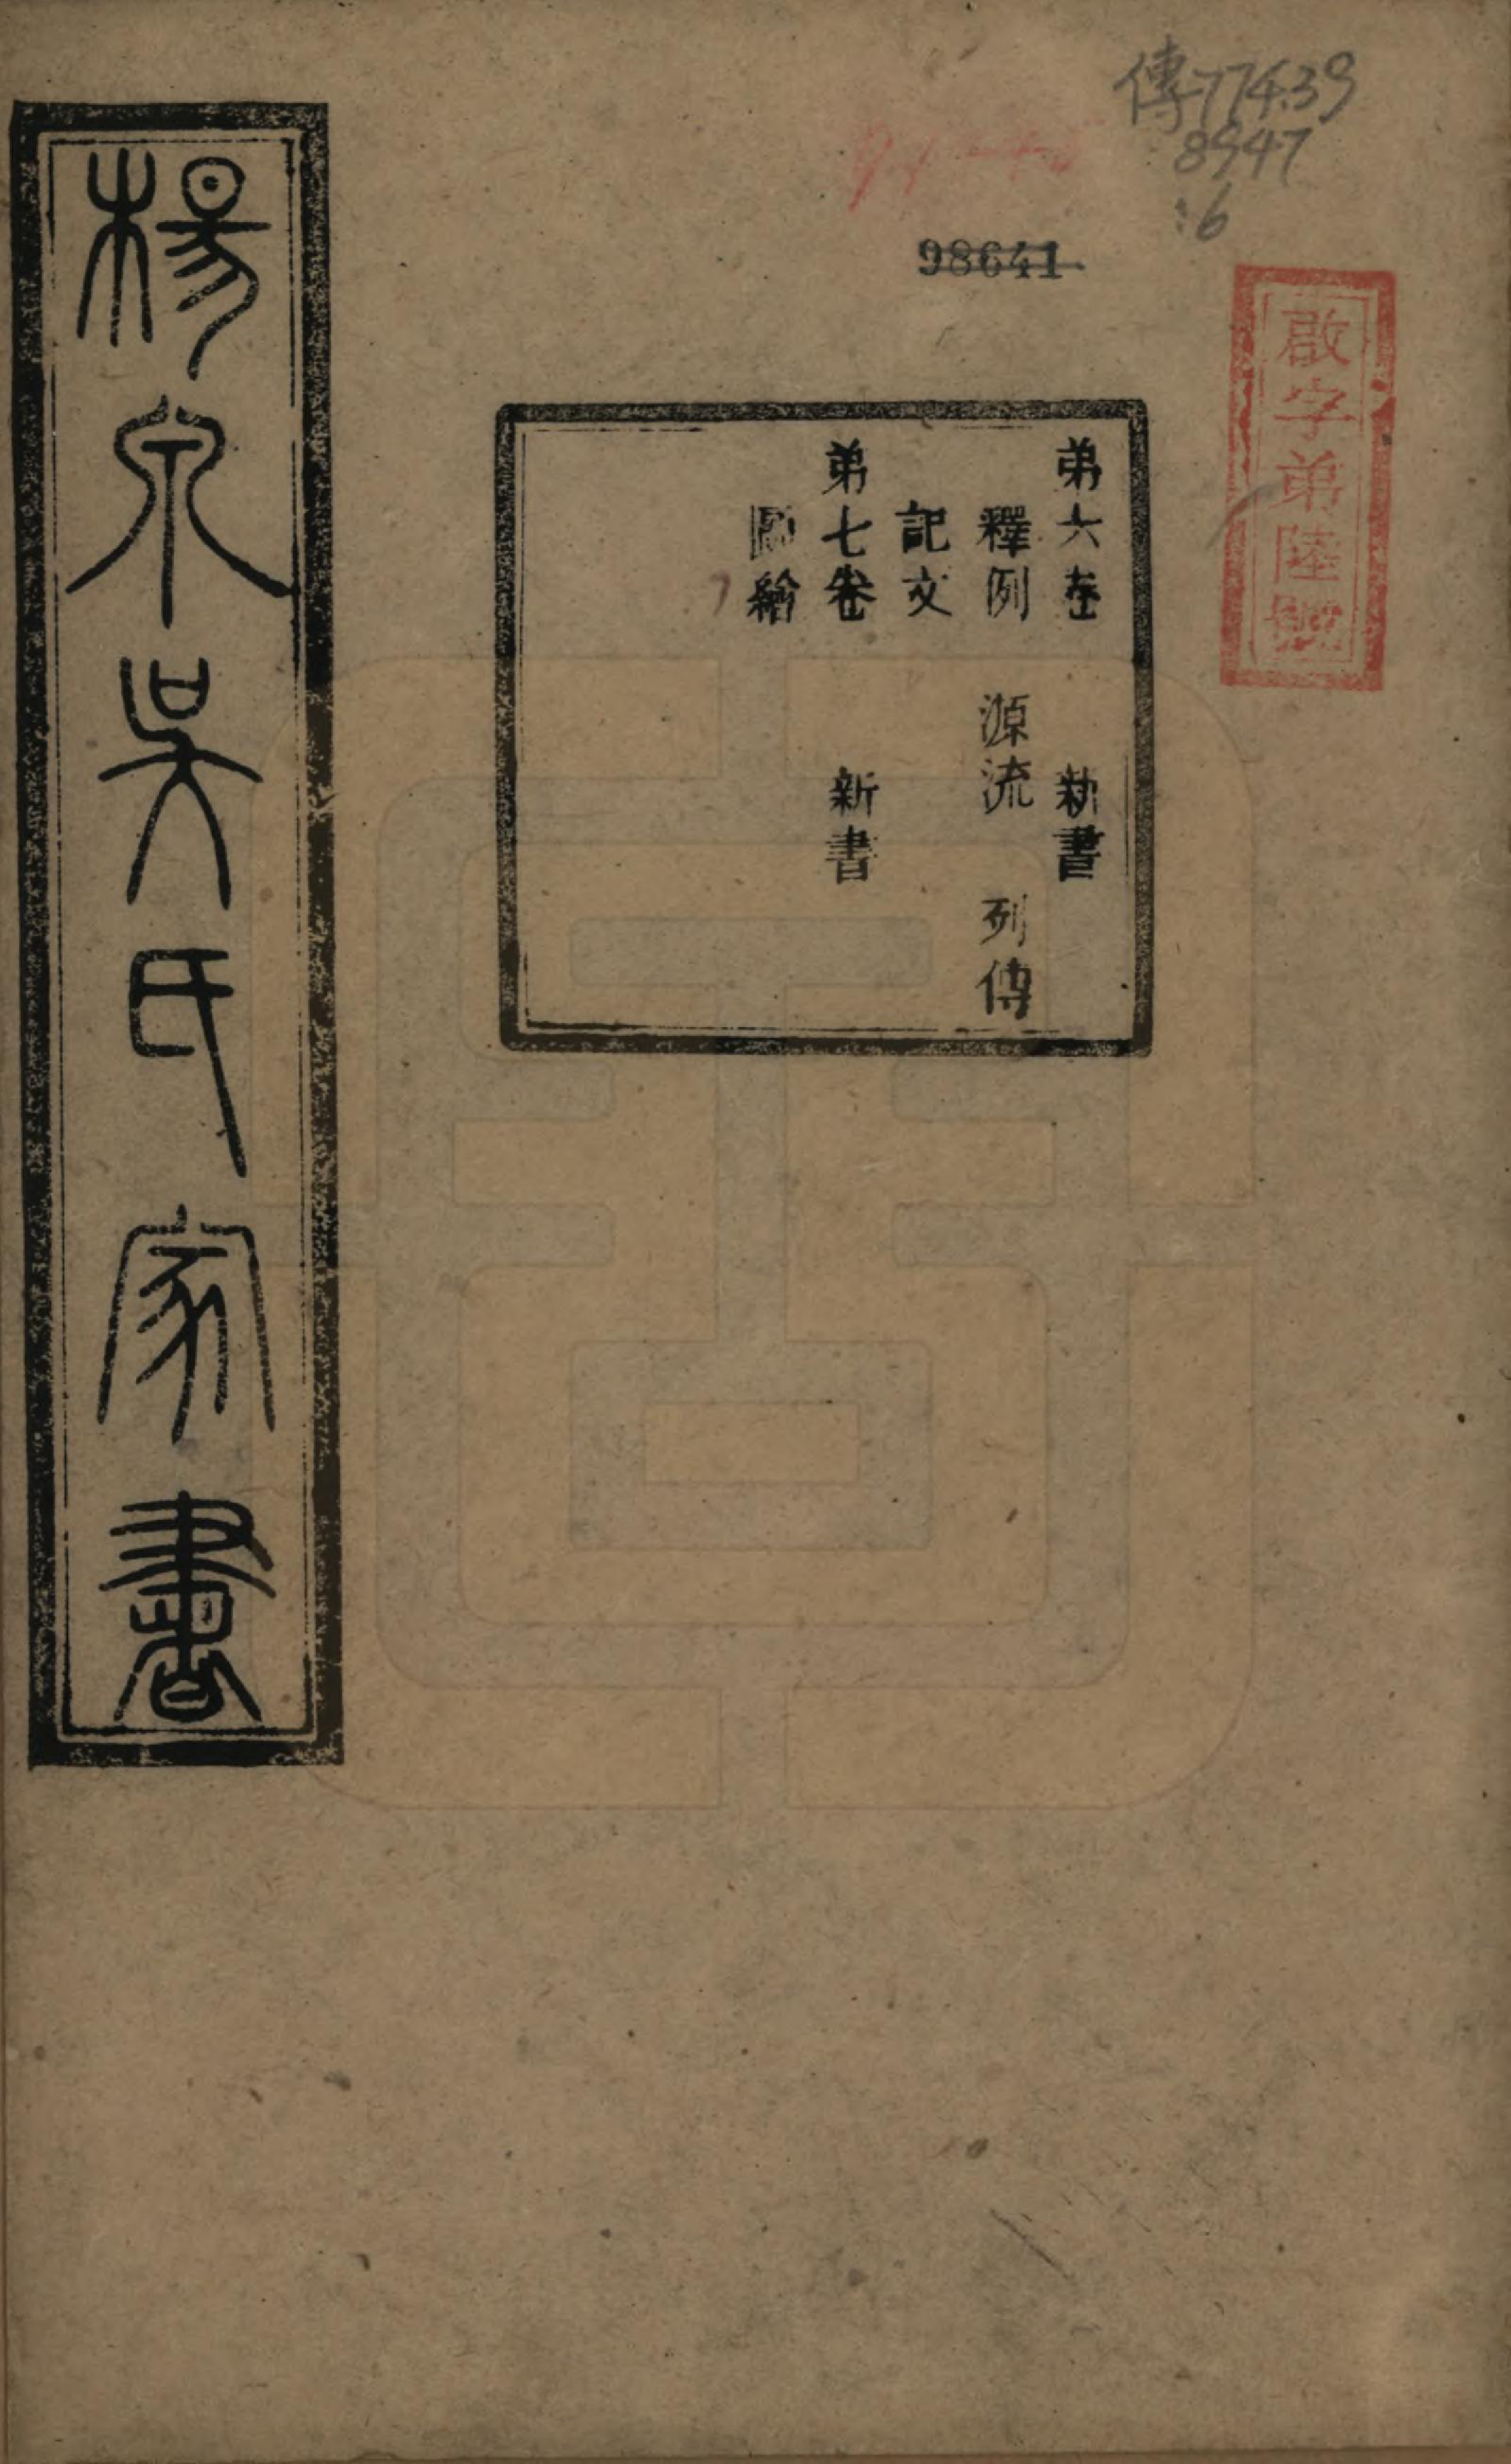 傳774.39
8947
:6
98641
啟字弟陸號
弟六卷 新書
釋例 源流 列傳
記文
弟七卷 新書
圖繪
楊泉吳氏家書